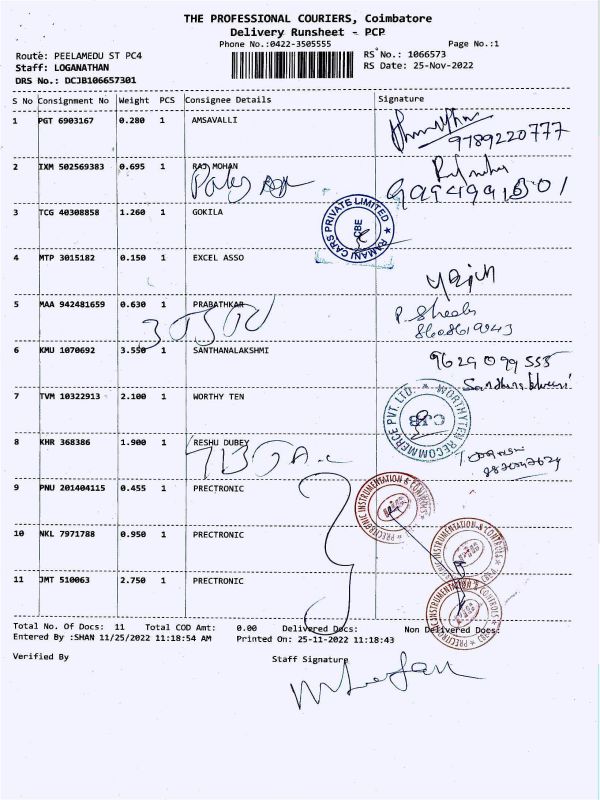 THE PROFESSIONAL COURIERS, Coimbatore
Delivery Runsheet - PCP
Phone No.:0422-3505555
Page No.:1
Route: PEELAMEDU ST PC4
RS No.: 1066573
Staff: LOGANATHAN
RS Date: 25-Nov-2022
DRS No.: DCJB106657301
S No Consignment No Weight PCS Consignee Details Signature
1 PGT 6903167 0.280 1 AMSAVALLI
9789220777
2 IXM 502569383 0.695 1 RAJ MOHAN
3 TCG 40308858 1.260 1 GOKILA
RAMANI CARS PRIVATE LIMITED
CBE
4 MTP 3015182 0.150 1 EXCEL ASSO
5 MAA 942481659 0.630 1 PRABATHKAR
P. Sheela
6 KMU 1070692 3.550 1 SANTHANALAKSHMI
9629099555
7 TVM 10322913 2.100 1 WORTHY TEN
WORTHYTEN RECOMMERCE PVT. LTD.
CJB
8 KHR 368386 1.900 1 RESHU DUBEY
9 PNU 201404115 0.455 1 PRECTRONIC
INSTRUMENTATION & CONTROLS
10 NKL 7971788 0.950 1 PRECTRONIC
INSTRUMENTATION & CONTROLS
11 JMT 510063 2.750 1 PRECTRONIC
INSTRUMENTATION & CONTROLS
Total No. Of Docs: 11 Total COD Amt: 0.00 Delivered Docs: Non Delivered Docs:
Entered By :SHAN 11/25/2022 11:18:54 AM Printed On: 25-11-2022 11:18:43
Verified By Staff Signature